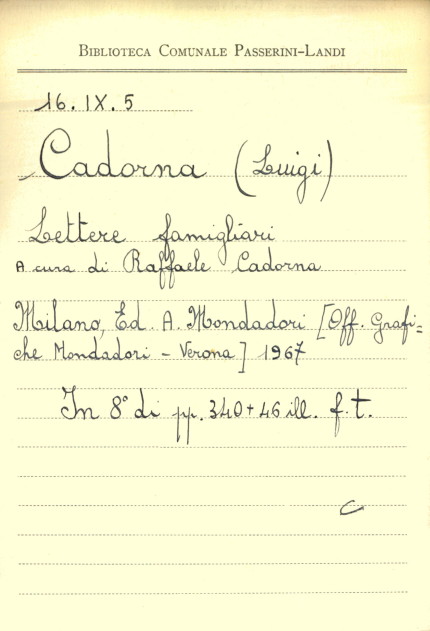 BIBLIOTECA COMUNALE PASSERINI-LANDI
16. IX. 5
Cadorna (Luigi)
Lettere famigliari
A cura di Raffaele Cadorna
Milano, Ed. A. Mondadori [Off. Grafi=
che Mondadori - Verona] 1967
In 8° di pp. 340+46 ill. f.t.
C